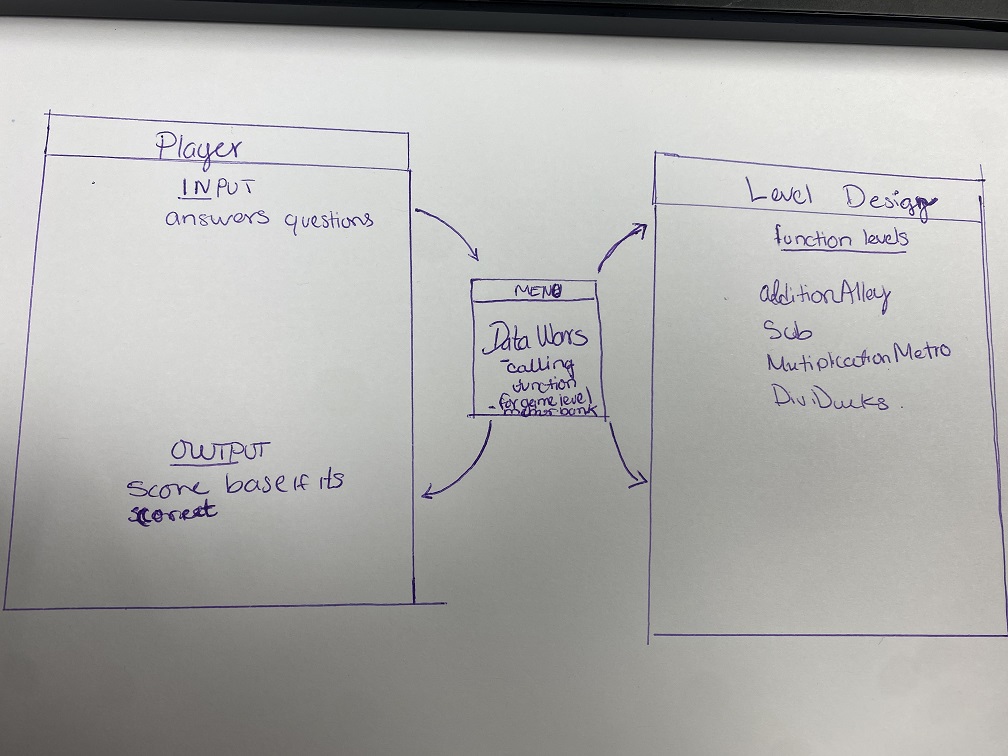 Player
INPUT
answers questions
OUTPUT
Score base if its
MENU
Data Wars
- calling
function
- for game level
bank
Level Design
function levels
additionAlley
Sub
MutiplicationMetro
DiviDucks.